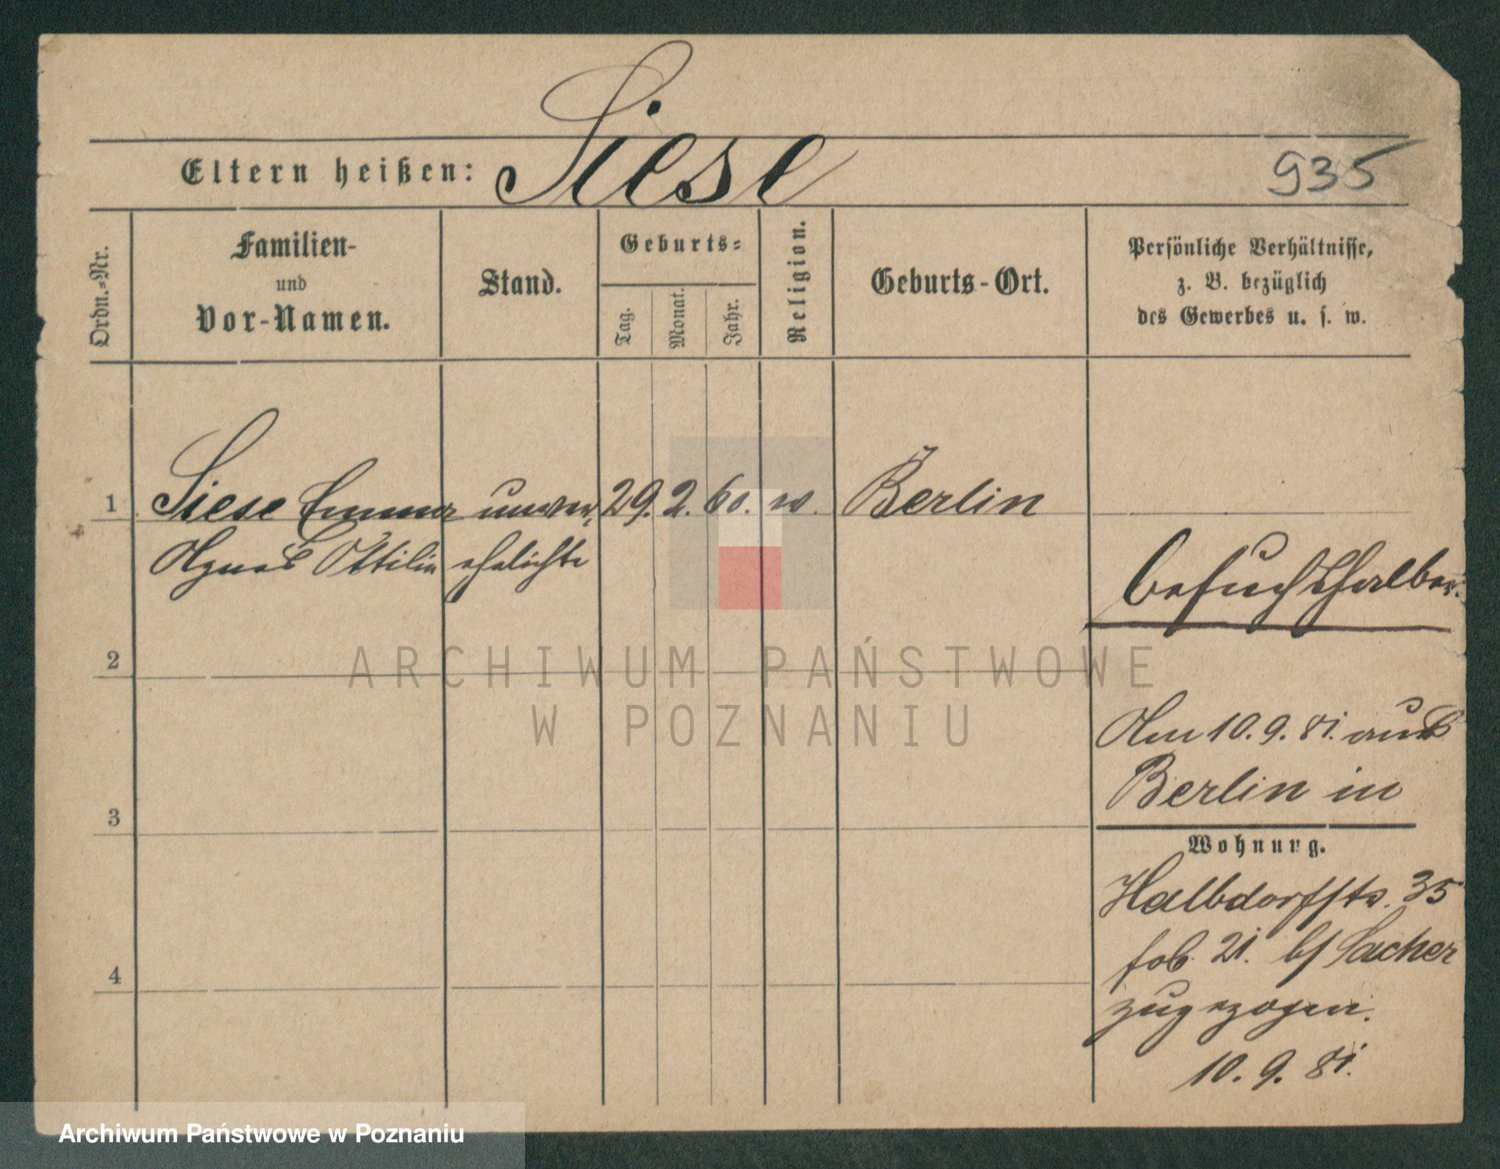 Siese
Eltern heißen:
935
Ordn.-Nr.
Familien-
und
Vor-Namen.
Stand.
Geburts-
Tag.
Monat.
Jahr.
Religion.
Geburts-Ort.
Persönliche Verhältnisse,
z. B. bezüglich
des Gewerbes u. s. w.
1 Siese Emma unver 29. 2. 60. Berlin
Agnes Ottilie ehelichte
besuchshalber.
2
ARCHIWUM PAŃSTWOWE
W POZNANIU
Am 10. 9. 81. aus
Berlin in
3
Wohnung.
Halbdorffstr. 35
b/ Sacher
4
zugezogen.
10. 9. 81.
Archiwum Państwowe w Poznaniu